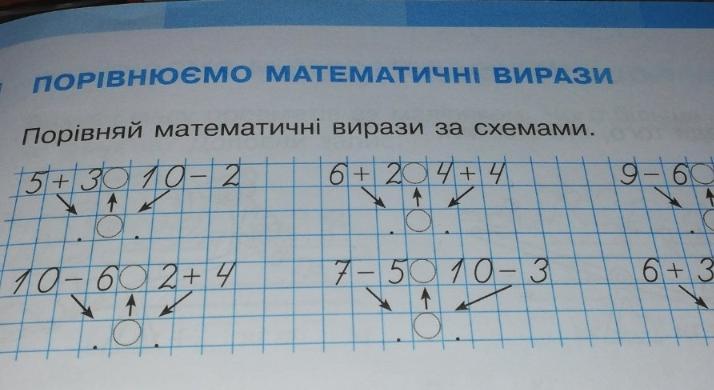 ПОРІВНЮЄМО МАТЕМАТИЧНІ ВИРАЗИ
Порівняй математичні вирази за схемами.
5 + 3 ○ 10 − 2 6 + 2 ○ 4 + 4 9 − 6 ○
. ○ . . ○ . .
10 − 6 ○ 2 + 4 7 − 5 ○ 10 − 3 6 + 3
. ○ . . ○ .